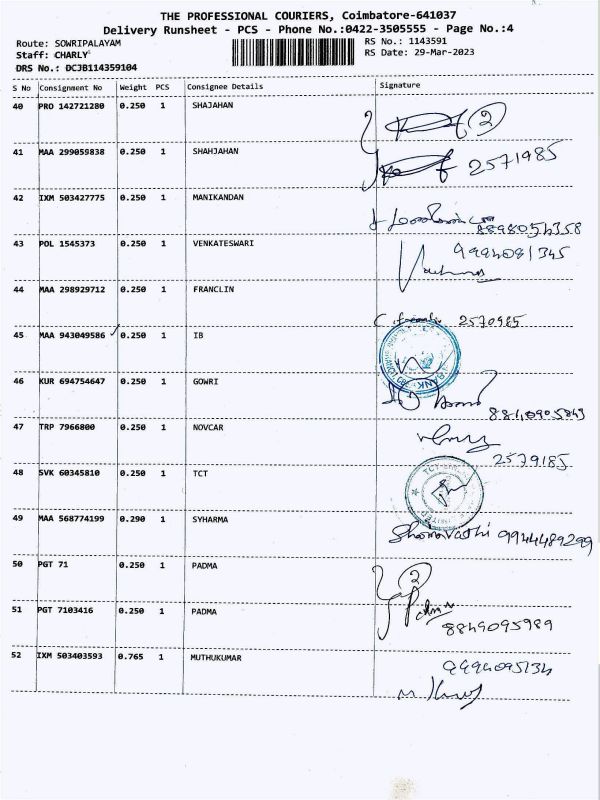 THE PROFESSIONAL COURIERS, Coimbatore-641037
Delivery Runsheet - PCS - Phone No.:0422-3505555 - Page No.:4
Route: SOWRIPALAYAM
Staff: CHARLY
DRS No.: DCJB114359104
RS No.: 1143591
RS Date: 29-Mar-2023
S No Consignment No Weight PCS Consignee Details Signature
40 PRO 142721280 0.250 1 SHAJAHAN 2
41 MAA 299059838 0.250 1 SHAHJAHAN 2571985
42 IXM 503427775 0.250 1 MANIKANDAN 8898054358
43 POL 1545373 0.250 1 VENKATESWARI 9994081345
44 MAA 298929712 0.250 1 FRANCLIN 2570985
45 MAA 943049586 0.250 1 IB
46 KUR 694754647 0.250 1 GOWRI
47 TRP 7966800 0.250 1 NOVCAR 2579185
48 SVK 60345810 0.250 1 TCT
49 MAA 568774199 0.290 1 SYHARMA 9944489299
50 PGT 71 0.250 1 PADMA 2
51 PGT 7103416 0.250 1 PADMA Padma 8849095989
52 IXM 503403593 0.765 1 MUTHUKUMAR 9994095134